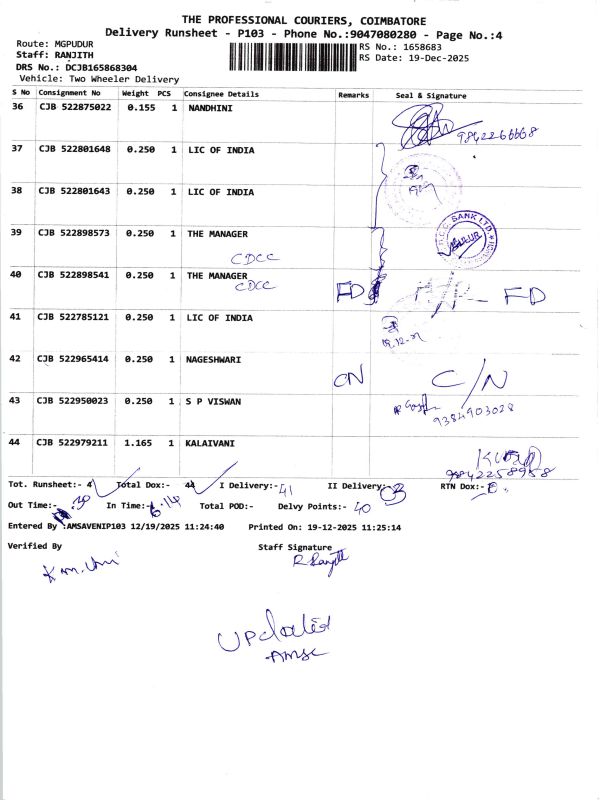 THE PROFESSIONAL COURIERS, COIMBATORE
Delivery Runsheet - P103 - Phone No.:9047080280 - Page No.:4
Route: MGPUDUR
RS No.: 1658683
Staff: RANJITH
RS Date: 19-Dec-2025
DRS No.: DCJB165868304
Vehicle: Two Wheeler Delivery
S No Consignment No Weight PCS Consignee Details Remarks Seal & Signature
36 CJB 522875022 0.155 1 NANDHINI
9842266668
37 CJB 522801648 0.250 1 LIC OF INDIA
38 CJB 522801643 0.250 1 LIC OF INDIA
39 CJB 522898573 0.250 1 THE MANAGER
CDCC
BANK LTD.
40 CJB 522898541 0.250 1 THE MANAGER
CDCC FD FD
41 CJB 522785121 0.250 1 LIC OF INDIA
42 CJB 522965414 0.250 1 NAGESHWARI
CN C/N
43 CJB 522950023 0.250 1 S P VISWAN
9384903028
44 CJB 522979211 1.165 1 KALAIVANI
9842258958
Tot. Runsheet:- 4 Total Dox:- 44 I Delivery:- 41 II Delivery:- 03 RTN Dox:-
Out Time:- In Time:- 6.14 Total POD:- Delvy Points:- 40
Entered By :AMSAVENIP103 12/19/2025 11:24:40 Printed On: 19-12-2025 11:25:14
Verified By Staff Signature
Updated